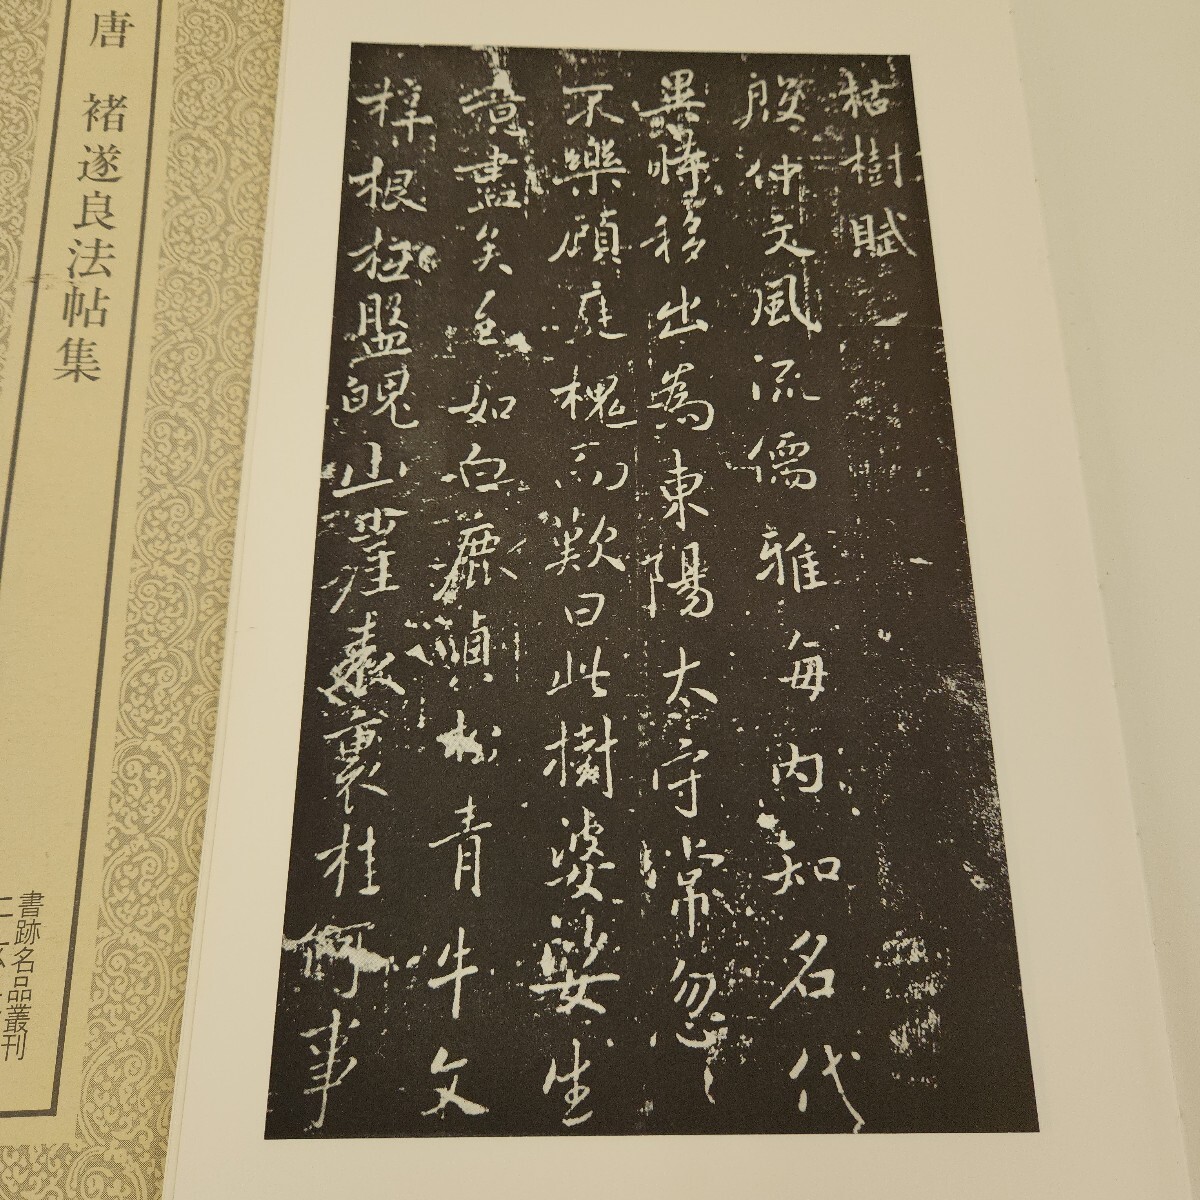 枯樹賦
殷仲文風流儒雅海内知名代
異時移出為東陽太守常忽〻
不樂顧庭槐而歎曰此樹婆娑生
意盡矣至如白鹿貞松青牛文
梓根柢盤魄山崖表裏桂何事
唐 褚遂良法帖集
書跡名品叢刊